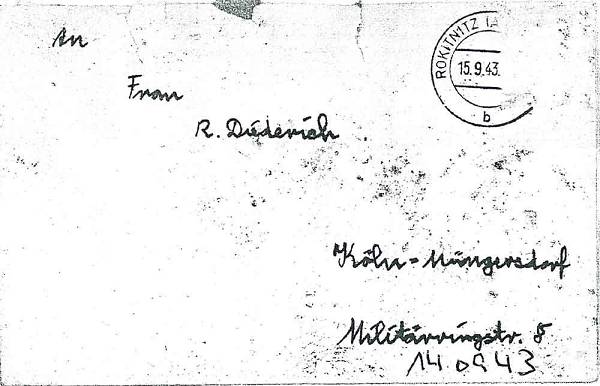 An
ROKITNITZ (A
15.9.43.
b
Frau
R. Diederich
Köln=Müngersdorf
Militärringstr. 8
14 09 43